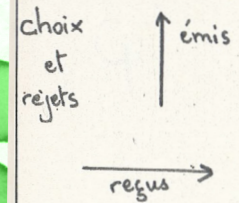 choix
et
rejets
émis
reçus